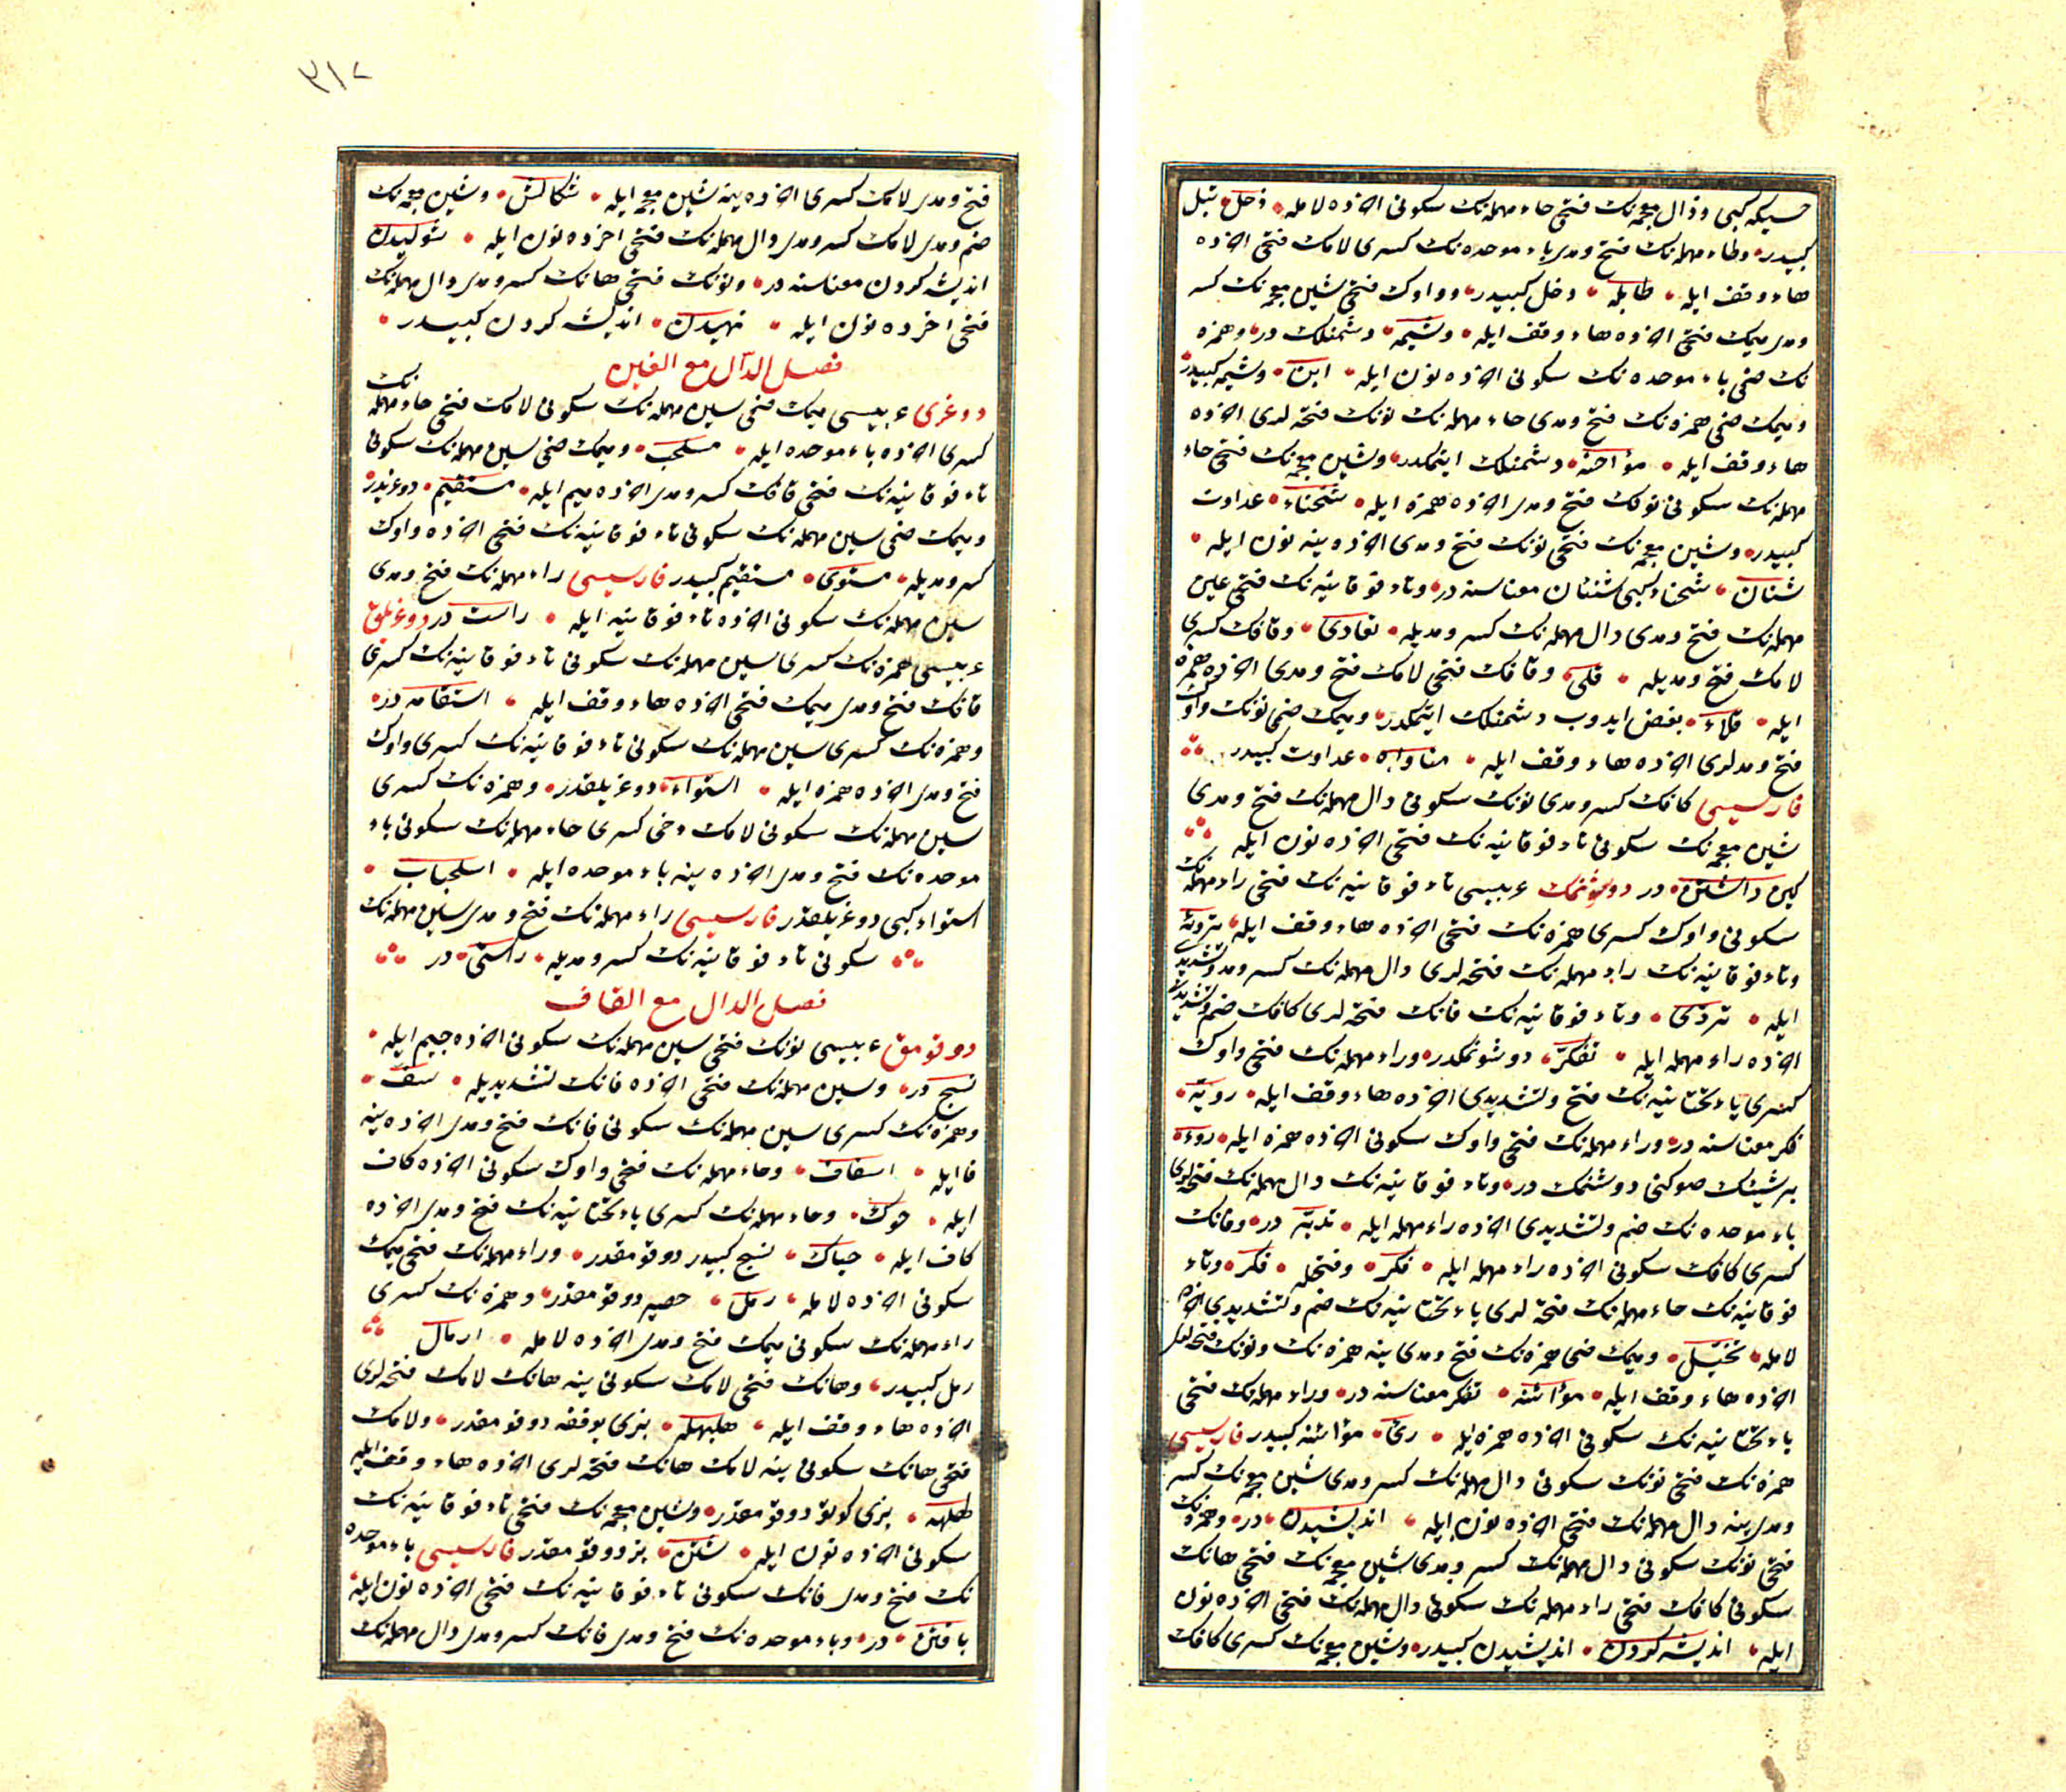 حسیکه کبی وذال معجمه‌نک فتحی حاء مهمله‌نک سکونی اخرده لامله • ذحل • تبل
کبیدر • وطاء مهمله‌نک فتح ومدی باء موحده‌نک کسری لامک فتحی اخرده
هاء وقف ایله • طابله • دخل کبیدر • وواوک فتحی شین معجمه‌نک کسر
ومدی میمک فتحی اخرده هاء وقف ایله • وشیمه • دشمنلک در • وهمزه
نک ضمی باء موحده‌نک سکونی اخرده نون ایله • ابن • وشیمه کبیدر
ومیمک ضمی همزه‌نک فتح ومدی حاء مهمله‌نک نونک فتحه‌لری اخرده
هاء وقف ایله • مؤاحنه • دشمنلک ایتمکدر • وشین معجمه‌نک فتحی حاء
مهمله‌نک سکونی نونک فتح ومدی اخرده همزه ایله • شحناء • عداوت
کبیدر • وشین معجمه‌نک فتحی نونک فتح ومدی اخرده ینه نون ایله •
شنان • شحناء کبی شنئان معناسنه در • وتاء فوقانیه‌نک فتحی عین
مهمله‌نک فتح ومدی دال مهمله‌نک کسر ومدیله • تعادی • وقافک کسری
لامک فتح ومدیله • قلی • وقافک فتحی لامک فتح ومدی اخرده همزه
ایله • قلاء • بغض ایدوب دشمنلک ایتمکدر • ومیمک ضمی نونک واوک
فتح ومدلری اخرده هاء وقف ایله • مناواه • عداوت کبیدر
فارسیسی کافک کسر ومدی نونک سکونی دال مهمله‌نک فتح ومدی
شین معجمه‌نک سکونی تاء فوقانیه‌نک فتحی اخرده نون ایله
کین داشتن • در دوشنمک عربیسی تاء فوقانیه‌نک فتحی راء مهمله‌نک
سکونی واوک کسری همزه‌نک فتحی اخرده هاء وقف ایله • تروئه
وتاء فوقانیه‌نک راء مهمله‌نک فتحه‌لری دال مهمله‌نک کسر ومد وتشدیدی
ایله • تردّی • وتاء فوقانیه‌نک فانک فتحه‌لری کافک ضم وتشدیدی
اخرده راء مهمله ایله • تفکّر • دوشونمکدر • وراء مهمله‌نک فتحی واوک
کسری یاء تحتانیه‌نک فتح وتشدیدی اخرده هاء وقف ایله • رویّه •
فکر معناسنه در • وراء مهمله‌نک فتحی واوک سکونی اخرده همزه ایله • روء •
بر شیئک صوکنی دوشنمک در • وتاء فوقانیه‌نک دال مهمله‌نک فتحه‌لری
باء موحده‌نک ضم وتشدیدی اخرده راء مهمله ایله • تدبّر در • وفانک
کسری کافک سکونی اخرده راء مهمله ایله • فکر • وفتحله • فکر • وتاء
فوقانیه‌نک خاء معجمه‌نک فتحه‌لری یاء تحتانیه‌نک ضم وتشدیدی اخرده
لامله • تخیّل • ومیمک ضمی همزه‌نک فتح ومدی ینه همزه‌نک ونونک فتحه‌لری
اخرده هاء وقف ایله • مؤائنه • تفکر معناسنه در • وراء مهمله‌نک فتحی
یاء تحتانیه‌نک سکونی اخرده همزه ایله • رئ • مؤائنه کبیدر فارسیسی
همزه‌نک فتحی نونک سکونی دال مهمله‌نک کسر ومدی شین معجمه‌نک کسر
ومدی ینه دال مهمله‌نک فتحی اخرده نون ایله • اندیشیدن • در • وهمزه‌نک
فتحی نونک سکونی دال مهمله‌نک کسر ومدی شین معجمه‌نک فتحی هانک
سکونی کافک فتحی راء مهمله‌نک سکونی دال مهمله‌نک فتحی اخرده نون
ایله • اندیشه کردن • اندیشیدن کبیدر • وشین معجمه‌نک کسری کافک
٣١٢
فتح ومدی لامک کسری اخرده ینه شین معجمه ایله • شکالش • وشین معجمه‌نک
ضم ومدی لامک کسر ومدی دال مهمله‌نک فتحی اخرده نون ایله • شولیدن
اندیشه کردن معناسنه در • ونونک فتحی هانک کسر ومدی دال مهمله‌نک
فتحی اخرده نون ایله • نهیدن • اندیشه کردن کبیدر •
فصل الدال مع الغین
دوغری عربیسی میمک ضمی سین مهمله‌نک سکونی لامک فتحی حاء مهمله‌نک
کسری اخرده باء موحده ایله • مسلحب • ومیمک ضمی سین مهمله‌نک سکونی
تاء فوقانیه‌نک فتحی قافک کسر ومدی اخرده میم ایله • مستقیم • دوغریدر
ومیمک ضمی سین مهمله‌نک سکونی تاء فوقانیه‌نک فتحی اخرده واوک
کسر ومدیله • مستوی • مستقیم کبیدر فارسیسی راء مهمله‌نک فتح ومدی
سین مهمله‌نک سکونی اخرده تاء فوقانیه ایله • راست در دوغریلق
عربیسی همزه‌نک کسری سین مهمله‌نک سکونی تاء فوقانیه‌نک کسری
قافک فتح ومدی میمک فتحی اخرده هاء وقف ایله • استقامه در •
وهمزه‌نک کسری سین مهمله‌نک سکونی تاء فوقانیه‌نک کسری واوک
فتح ومدی اخرده همزه ایله • استواء • دوغریلقدر • وهمزه‌نک کسری
سین مهمله‌نک سکونی لامک دخی کسری حاء مهمله‌نک سکونی باء
موحده‌نک فتح ومدی اخرده ینه باء موحده ایله • اسلحباب •
استواء کبی دوغریلقدر فارسیسی راء مهمله‌نک فتح ومدی سین مهمله‌نک
سکونی تاء فوقانیه‌نک کسر ومدیله • راستی • در
فصل الدال مع القاف
دوقومق عربیسی نونک فتحی سین مهمله‌نک سکونی اخرده جیم ایله •
نسج در • وسین مهمله‌نک فتحی اخرده فانک تشدیدیله • سفّ •
وهمزه‌نک کسری سین مهمله‌نک سکونی فانک فتح ومدی اخرده ینه
فا ایله • اسفاف • وحاء مهمله‌نک فتحی واوک سکونی اخرده کاف
ایله • حوک • وحاء مهمله‌نک کسری یاء تحتانیه‌نک فتح ومدی اخرده
کاف ایله • حیاک • نسج کبیدر دوقومقدر • وراء مهمله‌نک فتحی میمک
سکونی اخرده لامله • رمل • حصیر دوقومقدر • وهمزه‌نک کسری
راء مهمله‌نک سکونی میمک فتح ومدی اخرده لامله • ارمال
رمل کبیدر • وهانک فتحی لامک سکونی ینه هانک لامک فتحه‌لری
اخرده هاء وقف ایله • هلهله • بزی یوفقه دوقومقدر • ولامک
فتحی هانک سکونی ینه لامک هانک فتحه‌لری اخرده هاء وقف ایله
لهلهه • بزی کولو دوقومقدر • وشین معجمه‌نک فتحی تاء فوقانیه‌نک
سکونی اخرده نون ایله • شتن • بز دوقومقدر فارسیسی باء موحده
نک فتح ومدی فانک سکونی تاء فوقانیه‌نک فتحی اخرده نون ایله
بافتن • در • وباء موحده‌نک فتح ومدی فانک کسر ومدی دال مهمله‌نک